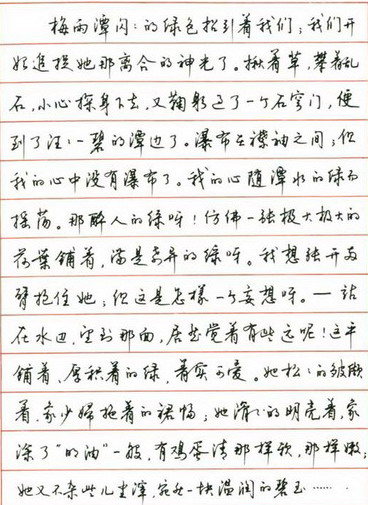 梅雨潭闪〻的绿色招引着我们;我们开
始追捉她那离合的神光了。揪着草,攀着乱
石,小心探身下去,又鞠躬过了一个石穹门,便
到了汪〻一碧的潭边了。瀑布在襟袖之间;但
我的心中没有瀑布了。我的心随潭水的绿而
摇荡。那醉人的绿呀!仿佛一张极大极大的
荷葉铺着,满是奇异的绿呀。我想张开两
臂抱住她;但这是怎樣一个妄想呀。—站
在水边,望到那面,居然觉着有些远呢!这平
铺着、厚积着的绿,着实可爱。她松〻的皱缬
着,象少婦拖着的裙幅;她滑〻的明亮着,象
涂了“的油”一般,有鸡蛋清那样软,那样嫩;
她又不杂些儿尘滓,宛然一块温润的碧玉……